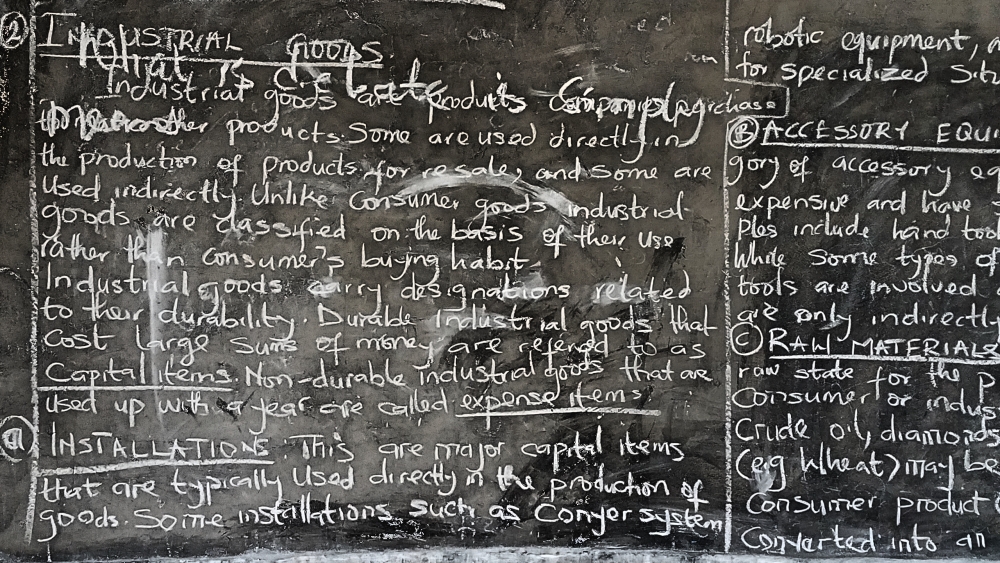 ② INDUSTRIAL GOODS
What is
Industrial goods are products companies purchase
to make other products. Some are used directly in
the production of products for resale, and some are
used indirectly. Unlike Consumer goods industrial
goods are classified on the basis of their use
rather than consumer's buying habit.
Industrial goods carry designations related
to their durability. Durable Industrial goods that
Cost large sums of money are referred to as
Capital items. Non-durable industrial goods that are
used up with a year are called expense items
ⓐ INSTALLATIONS This are major capital items
that are typically Used directly in the production of
goods. Some installations such as Conyer system
robotic equipment,
for specialized
Ⓑ ACCESSORY EQUI
gory of accessory eq
expensive and have
ples include hand tool
While some types of
tools are involved
are only indirectly
Ⓒ RAW MATERIALS
raw state for the p
Consumer or indus
Crude oil, diamonds
(e.g Wheat) may be
Consumer product
Converted into an